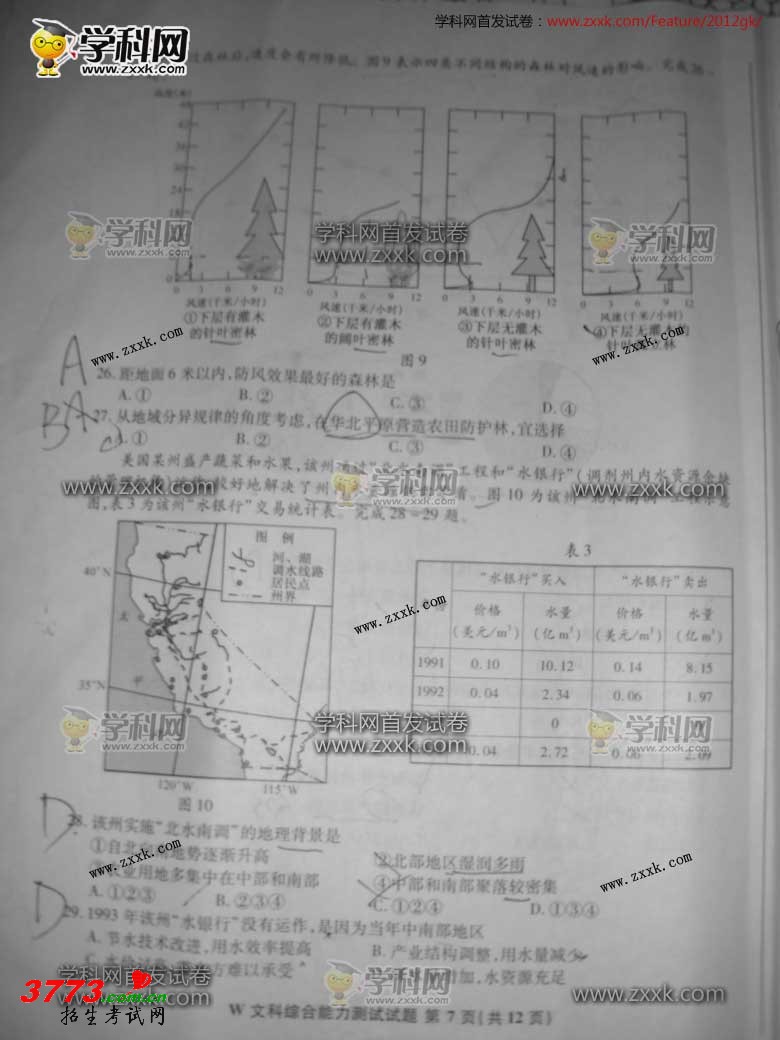 学科网首发试卷：www.zxxk.com/Feature/2012gk/
学科网
www.zxxk.com
速度会有所降低。图9表示四类不同结构的森林对风速的影响。完成26
0 3 6 9 12
风速(千米/小时)
①下层有灌木
的针叶密林
0 3 6 9 12
风速(千米/小时)
②下层有灌木
的阔叶密林
0 3 6 9 12
风速(千米/小时)
③下层无灌木
的针叶密林
0 3 6 9 12
风速(千米/小时)
④下层无灌木的
图9
学科网
www.zxxk.com
学科网首发试卷
www.zxxk.com
学科网
www.zxxk.com
www.zxxk.com
www.zxxk.com
A
26. 距地面6米以内,防风效果最好的森林是
A. ① B. ② C. ③ D. ④
BA
27. 从地域分异规律的角度考虑,在华北平原营造农田防护林,宜选择
① B. ② C. ③ D. ④
美国某州盛产蔬菜和水果,该州 工程和“水银行”(调剂州内水资源余缺
较好地解决了州 图10为该州
图,表3为该州“水银行”交易统计表。完成28~29题。
学科网首发试卷
www.zxxk.com
学科网首发试卷
www.zxxk.com
图例
河、湖
调水线路
居民点
州界
40°N
35°N
太
120°W 115°W
图10
www.zxxk.com
表3
“水银行”买入 “水银行”卖出
价格 水量 价格 水量
(美元/m³) (亿m³) (美元/m³) (亿m³)
1991 0.10 10.12 0.14 8.15
1992 0.04 2.34 0.06 1.97
0
0.04 2.72 0.06 2.09
学科网
www.zxxk.com
学科网首发试卷
www.zxxk.com
学科网
www.zxxk.com
D
28. 该州实施“北水南调”的地理背景是
①自北 地势逐渐升高 ②北部地区湿润多雨
业用地多集中在中部和南部 ④中部和南部聚落较密集
A. ①②③ B. ②③④ C. ①②④ D. ①③④
www.zxxk.com
www.zxxk.com
D
29. 1993年该州“水银行”没有运作,是因为当年中南部地区
A. 节水技术改进,用水效率提高 B. 产业结构调整,用水量减少
难以承受 加,水资源充足
学科网首发试卷
www.zxxk.com
学科网首发试卷
www.zxxk.com
www.zxxk.com
3773.com.cn
招生考试网
W 文科综合能力测试试题 第7页(共12页)